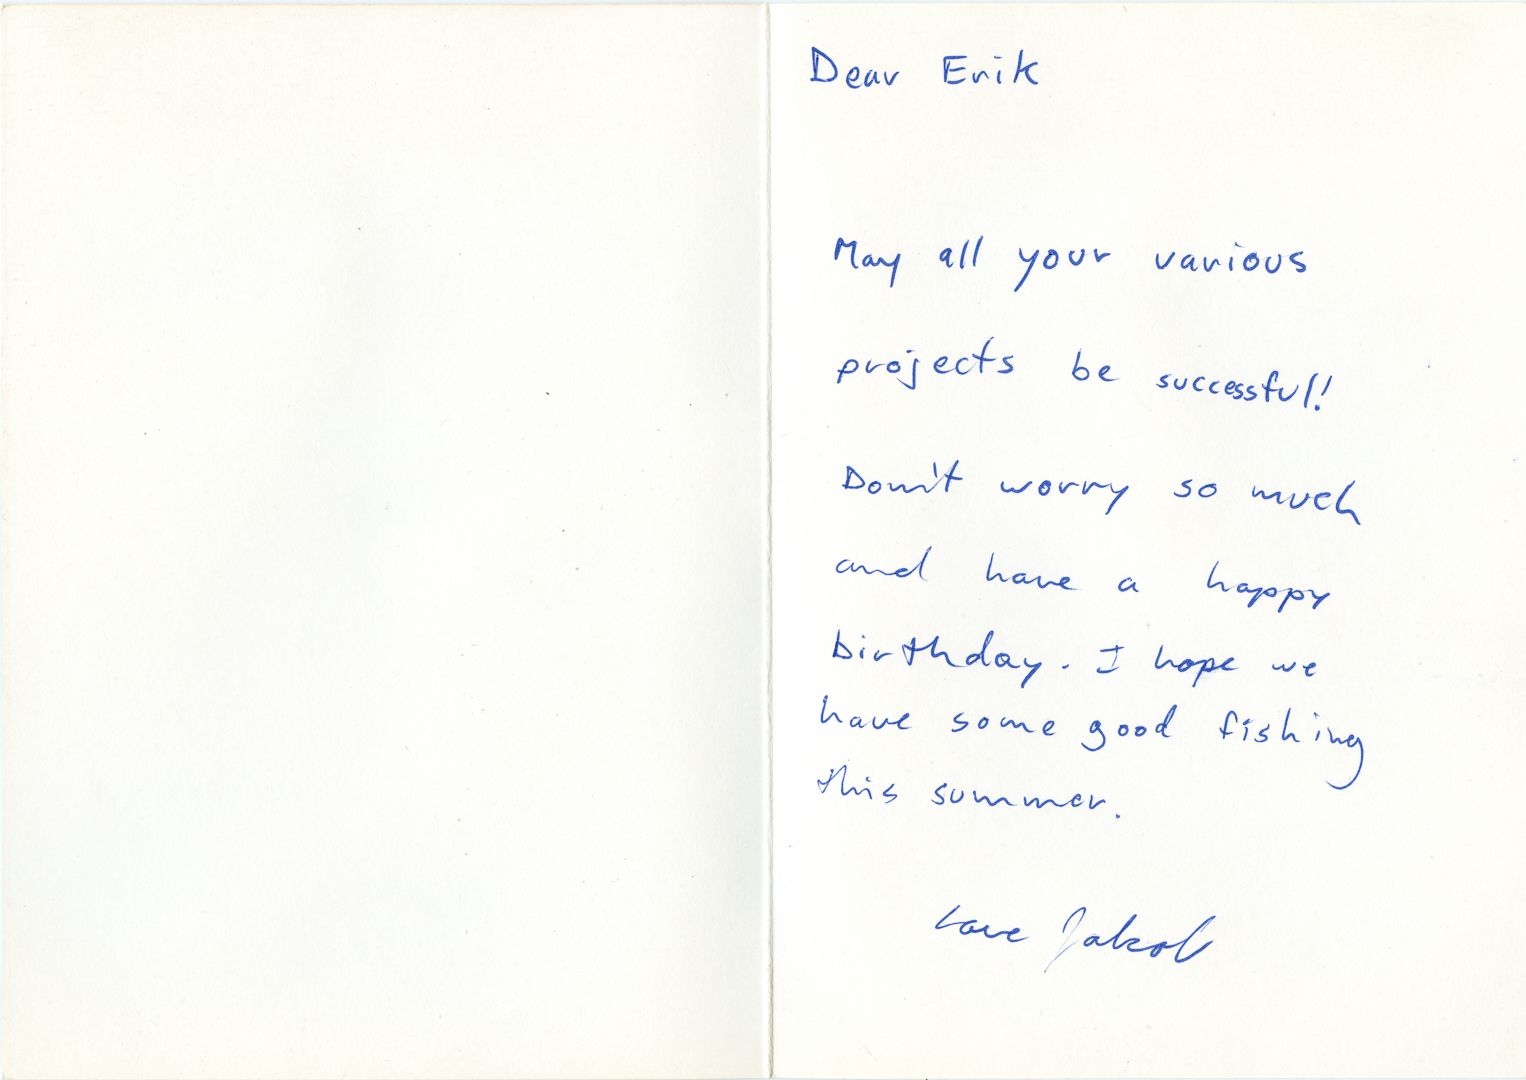 Dear Erik
May all your various
projects be successful!
Don't worry so much
and have a happy
birthday. I hope we
have some good fishing
this summer.
Love Jakob